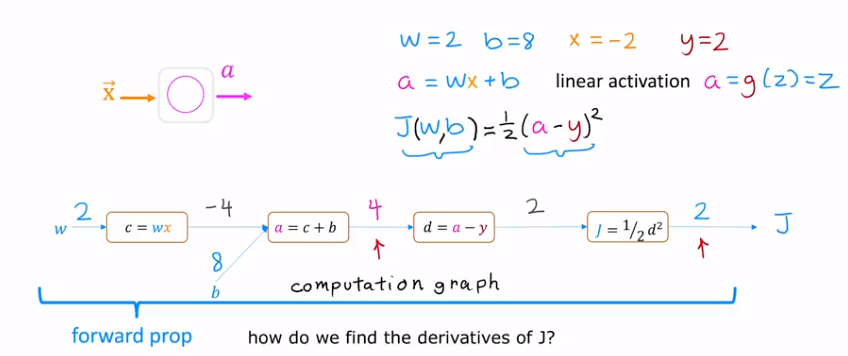 w=2 b=8 x=-2 y=2
a
x⃗
a = wx+b linear activation a=g(z)=z
J(w,b)=½(a-y)²
2 -4 4 2 2
w c = wx a = c + b d = a − y J = 1/2 d² J
8
b
computation graph
forward prop how do we find the derivatives of J?